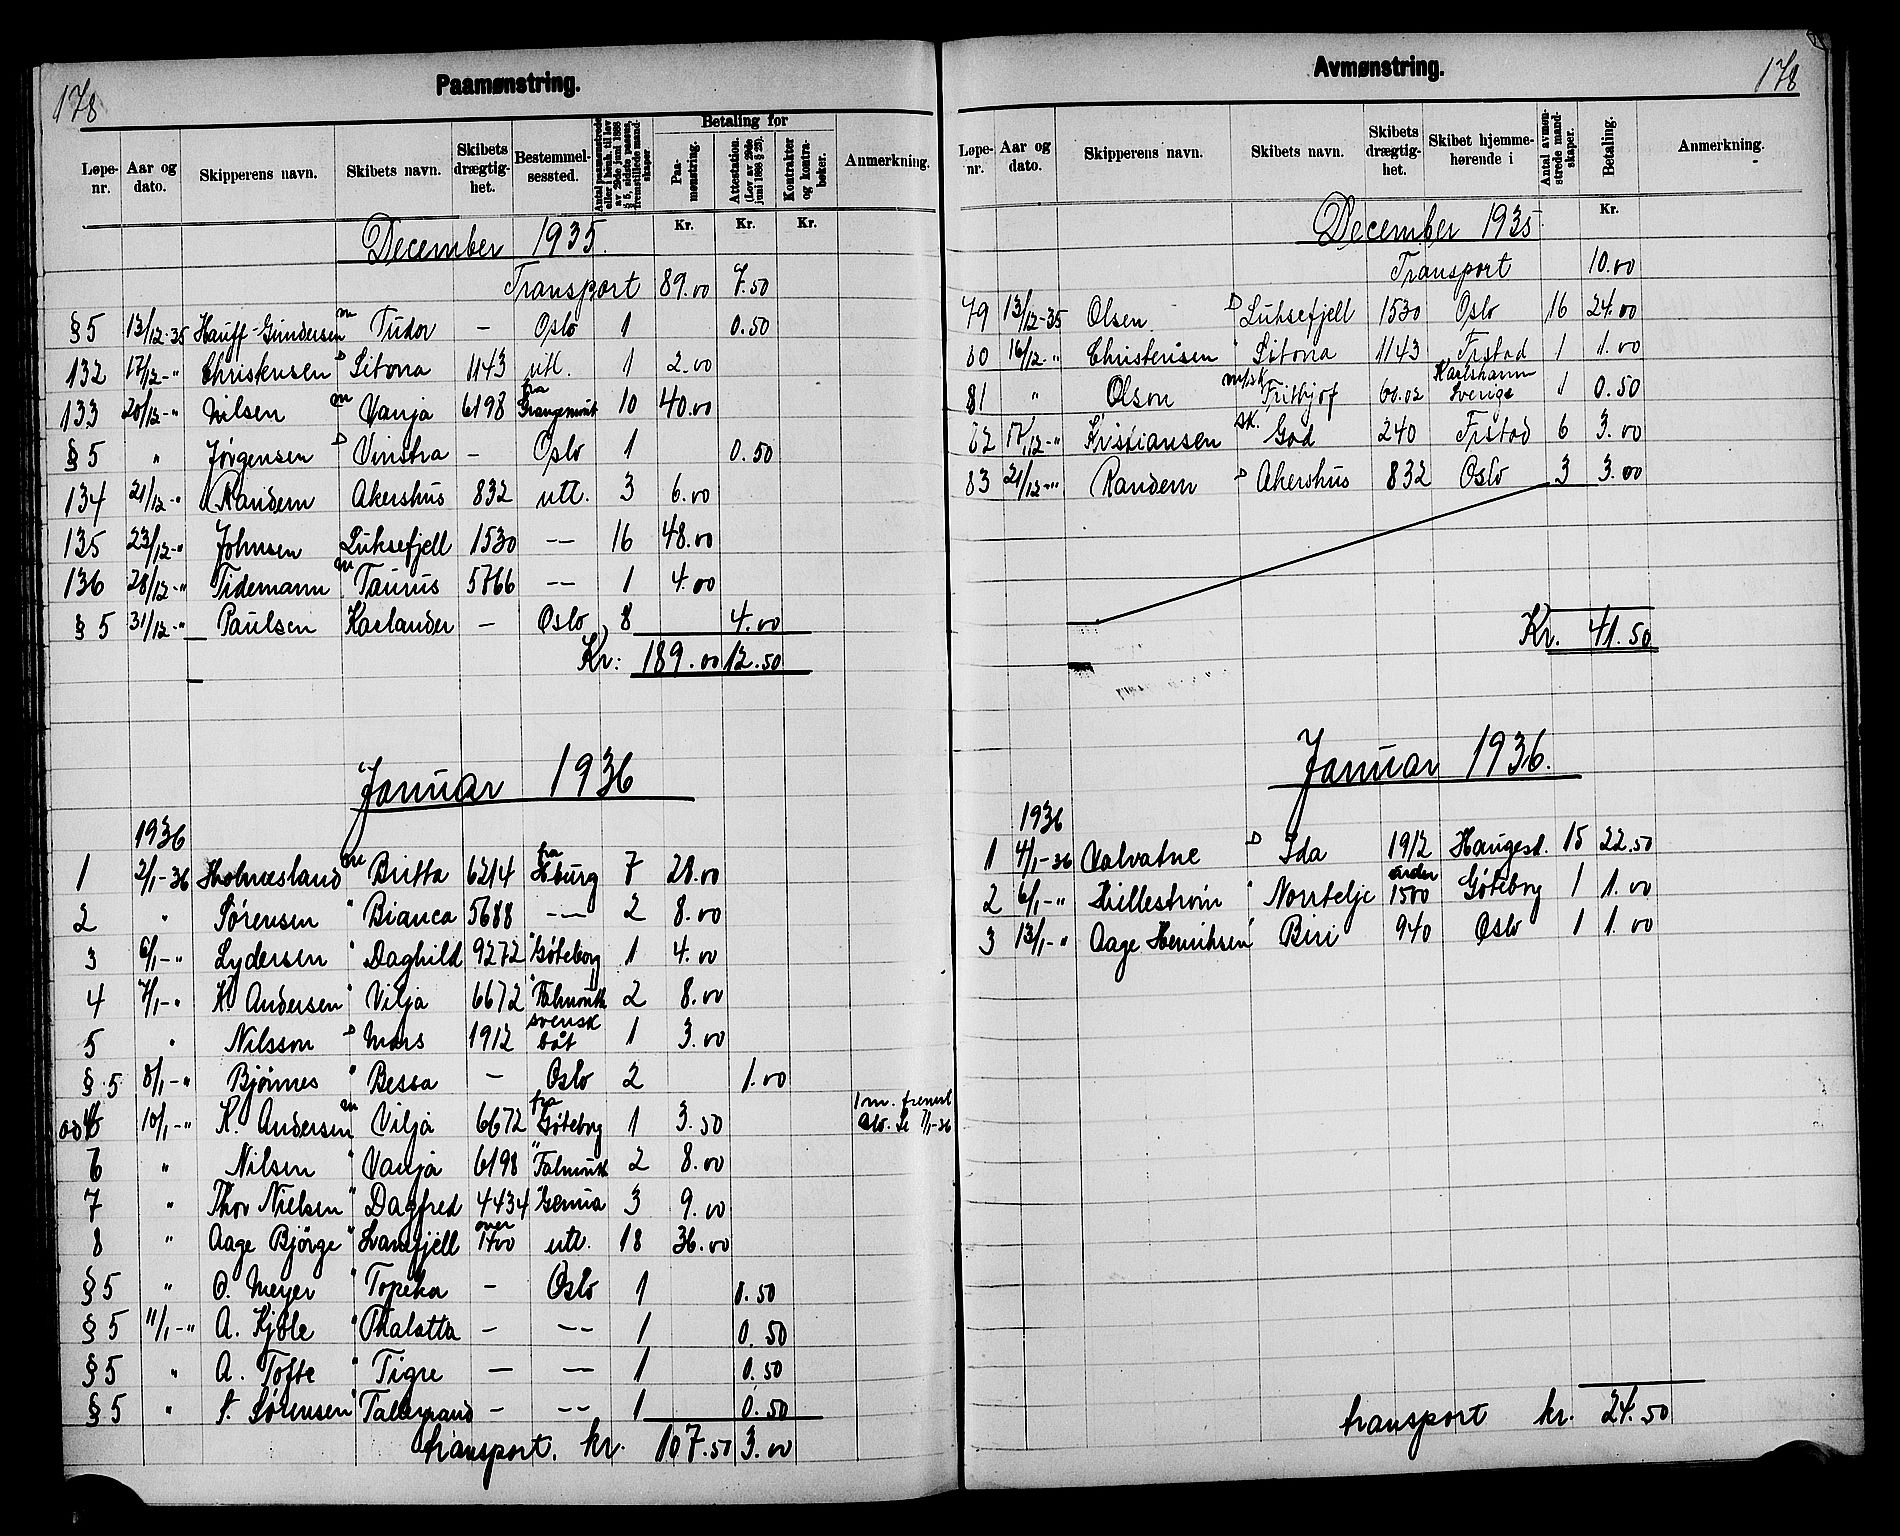 178
Paamønstring.
Løpe-nr. Aar og dato. Skipperens navn. Skibets navn. Skibets drægtig-het. Bestemmel-sessted. Antal paamønstrede eller i henh. til lov av 29de juni 1888 § 5, sidste passus, fremstillede mand-skaper. Betaling for Paa-mønstring. Attestation. (Lov av 29de juni 1888 § 23). Kontrakter og kontra-bøker. Anmerkning.
Kr. Kr. Kr.
December 1935.
Transport 89.00 7.50
§ 5 13/12-35 Hauff-Gundersen m Tudor - Oslo 1 0.50
132 17/12-" Christensen D Sitona 1143 utl. 1 2.00
133 20/12-" Nilsen m Vanja 6198 fra Grangemouth 10 40.00
§ 5 " Jørgensen D Vinstra - Oslo 1 0.50
134 21/12-" Randem Akershus 832 utl. 3 6.00
135 23/12-" Johnsen Luksefjell 1530 -- 16 48.00
136 28/12-" Tidemann m Taurus 5766 -- 1 4.00
§ 5 31/12-" Paulsen Karlander - Oslo 8 4.00
Kr: 189.00 12.50
Januar 1936
1936
1 2/1-36 Holmesland m Britta 6214 fra Hburg 7 28.00
2 " Sørensen " Bianca 5688 -- 2 8.00
3 6/1-" Lydersen " Daghild 9272 " Göteborg 1 4.00
4 7/1-" K. Andersen " Vilja 6672 " Falmouth 2 8.00
5 " Nilsson D Mars 1912 svensk båt 1 3.00
§ 5 8/1-" Bjønnes " Bessa - Oslo 2 1.00
10/1-" K. Andersen m Vilja 6672 fra Göteborg 1 3.50 1 m. fremst
7/1-36
6 " Nilsen " Vanja 6198 " Falmouth 2 8.00
7 " Thor Nielsen " Dagfred 4434 " Genua 3 9.00
8 " Aage Bjørge " Lanefjell over 1400 utl. 18 36.00
§ 5 " O. Meyer " Topeka - Oslo 1 0.50
§ 5 11/1-" A. Kjøle " Thalatta - -- 1 0.50
§ 5 " A. Tofte " Tigre - -- 1 0.50
§ 5 " Sørensen " Talleyrand - -- 1 0.50
transport. kr. 107.50 3.00
178
Avmønstring.
Løpe-nr. Aar og dato. Skipperens navn. Skibets navn. Skibets drægtig-het. Skibet hjemme-hørende i Antal avmøn-strede mand-skaper. Betaling. Anmerkning.
Kr.
December 1935
Transport 10.00
79 13/12-35 Olsen D Luksefjell 1530 Oslo 16 24.00
80 16/12-" Christensen " Sitona 1143 Frstad 1 1.00
81 " Olson m/sk Frithjof 60.02 Karlshamn Sverige 1 0.50
82 17/12-" Kristiansen sk. God 240 Frstad 6 3.00
83 21/12-" Randem D Akershus 832 Oslo 3 3.00
Kr. 41.50
Januar 1936.
1936
1 4/1-36 Valvatne D Ida 1912 Haugesd. 15 22.50
2 6/1-" Lillestrøm " Norrtelje under 1500 Göteborg 1 1.00
3 13/1-" Aage Henriksen " Biri 940 Oslo 1 1.00
transport kr. 24.50